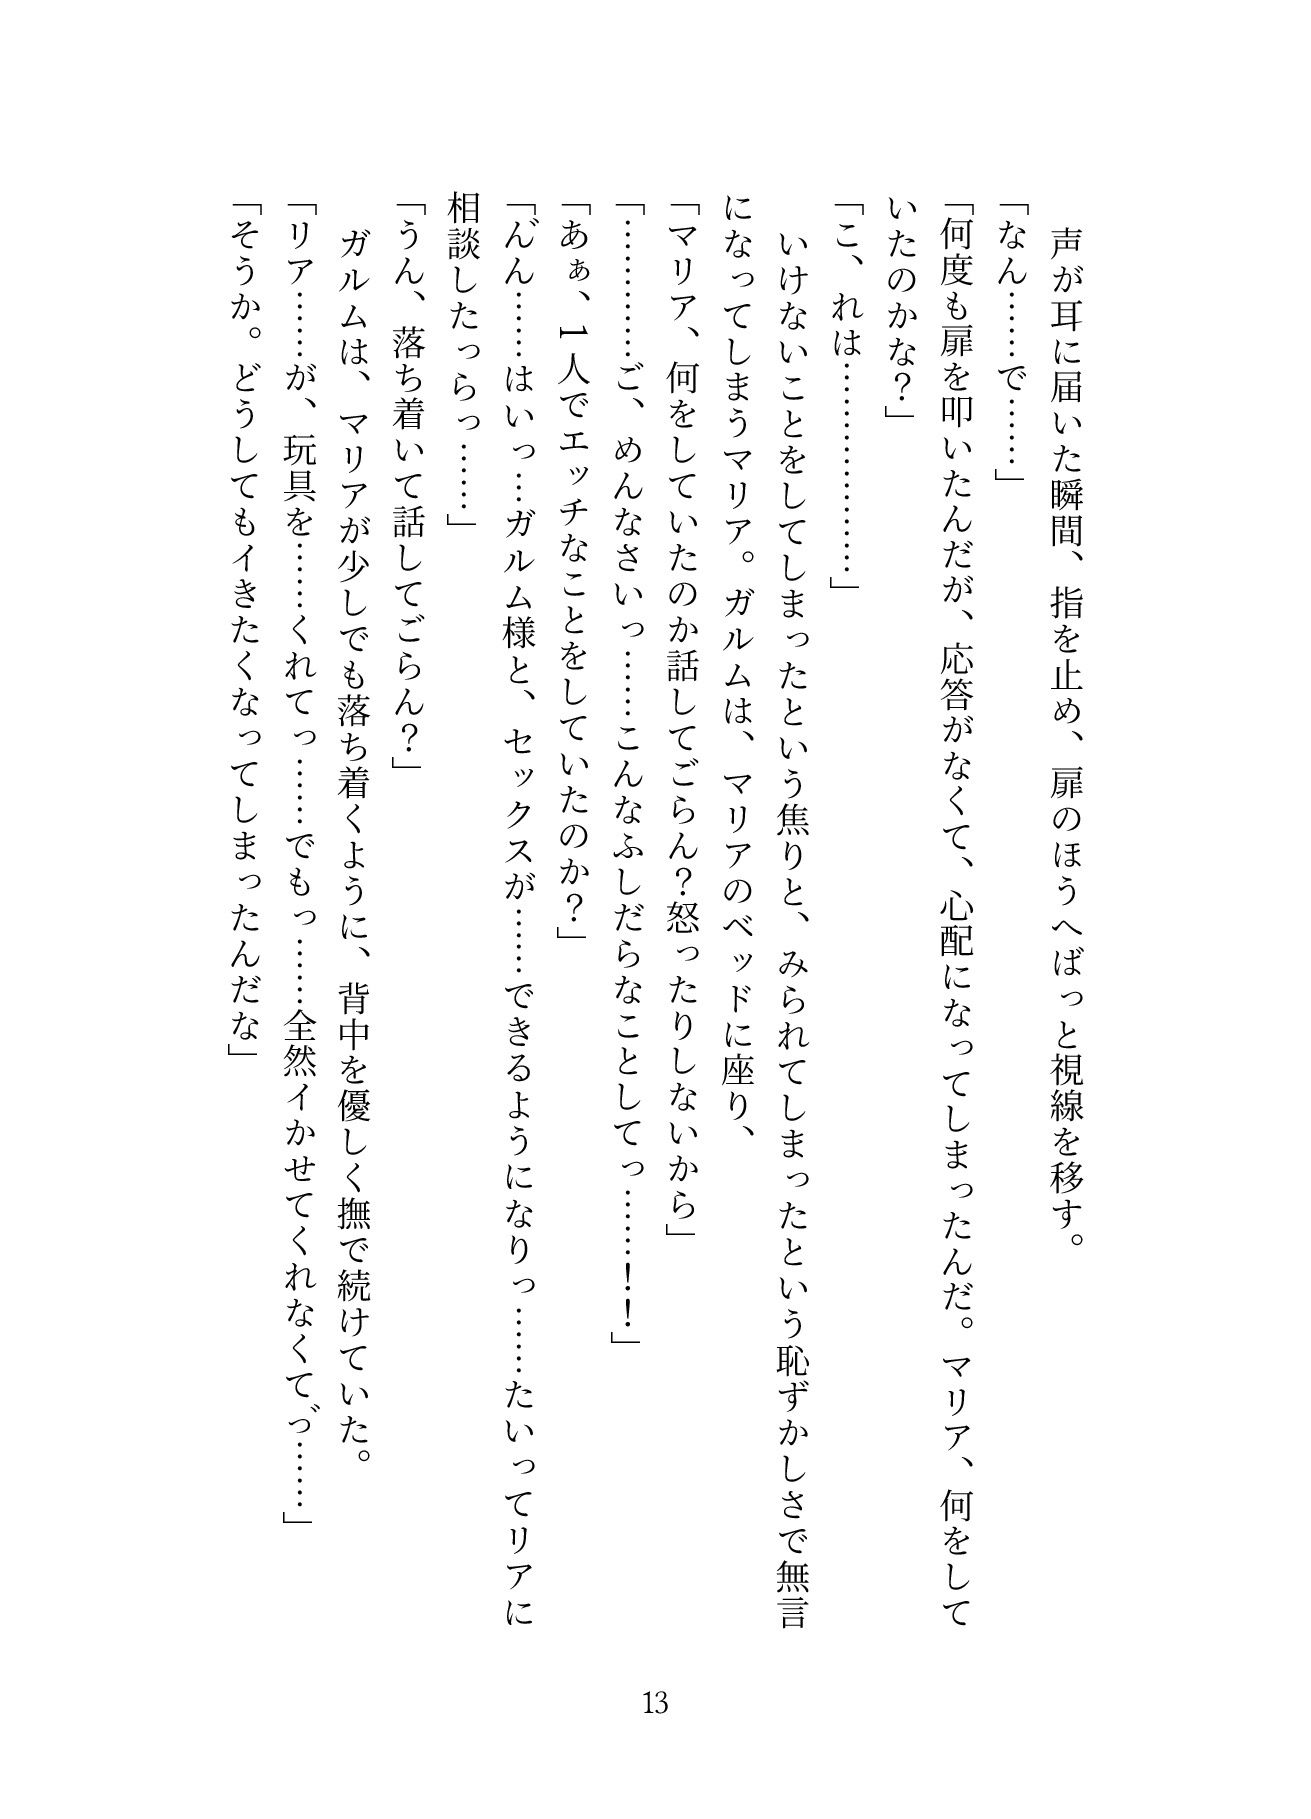 声が耳に届いた瞬間、指を止め、扉のほうへばっと視線を移す。
「なん……で……」
「何度も扉を叩いたんだが、応答がなくて、心配になってしまったんだ。マリア、何をして
いたのかな？」
「こ、れは………………」
いけないことをしてしまったという焦りと、みられてしまったという恥ずかしさで無言
になってしまうマリア。ガルムは、マリアのベッドに座り、
「マリア、何をしていたのか話してごらん？怒ったりしないから」
「…………ご、めんなさいっ……こんなふしだらなことしてっ……！！」
「あぁ、1人でエッチなことをしていたのか？」
「ん゛ん……はいっ…ガルム様と、セックスが……できるようになりっ……たいってリアに
相談したっらっ……」
「うん、落ち着いて話してごらん？」
ガルムは、マリアが少しでも落ち着くように、背中を優しく撫で続けていた。
「リア……が、玩具を……くれてっ……でもっ……全然イかせてくれなくてっ゛……」
「そうか。どうしてもイきたくなってしまったんだな」
13